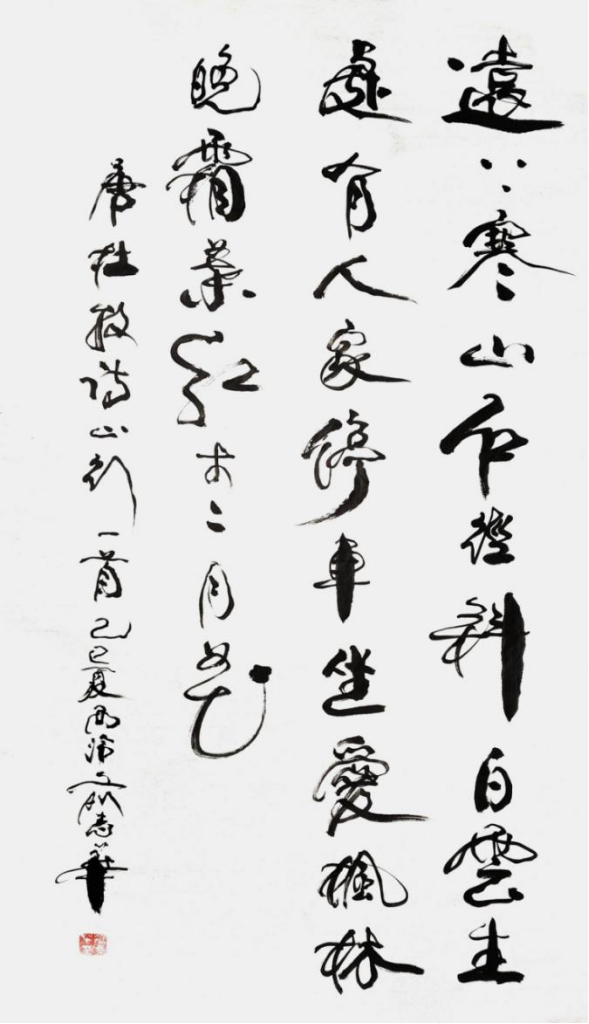 遠〻寒山石徑斜白雲生
處有人家停車坐愛楓林
晚霜葉紅於二月花
唐杜牧詩山行一首己巳夏志華